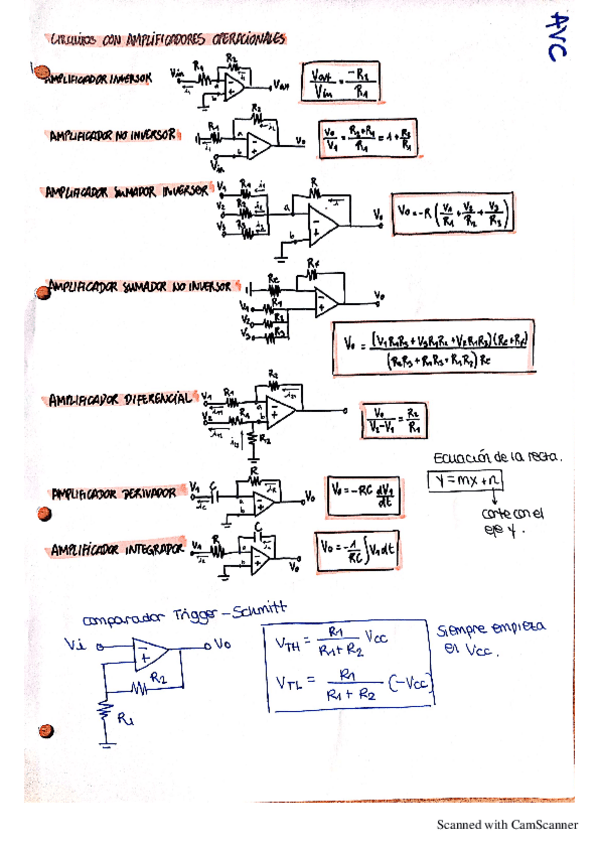 AVC
CIRCUITOS CON AMPLIFICADORES OPERACIONALES
AMPLIFICADOR INVERSOR
Vin R1 R2 Vout
Vout/Vin = -R2/R1
AMPLIFICADOR NO INVERSOR
R1 R2 Vin Vo
Vo/V1 = R2+R1/R1 = 1 + R2/R1
AMPLIFICADOR SUMADOR INVERSOR
V1 R1 i1 R
V2 R2 i2 a Vo
V3 R3 i3 b
Vo = -R (V1/R1 + V2/R2 + V3/R3)
AMPLIFICADOR SUMADOR NO INVERSOR
Re Rf
V1 R1 Vo
V2 R2
V3 R3
AMPLIFICADOR DIFERENCIAL
V1 R1 R2
V2 R1 R2
Vo/V2-V1 = R2/R1
Ecuación de la recta.
y = mx + n
corte con el
eje y.
AMPLIFICADOR DERIVADOR
V1 C R Vo
Vo = -RC dV1/dt
AMPLIFICADOR INTEGRADOR
R C Vo
Vo = -1/RC ∫ V1 dt
comparador Trigger-Schmitt
Vi Vo
R2
R1
VTH = R1/R1+R2 Vcc
VTL = R1/R1+R2 (-Vcc)
Siempre empieza
en Vcc.
Scanned with CamScanner